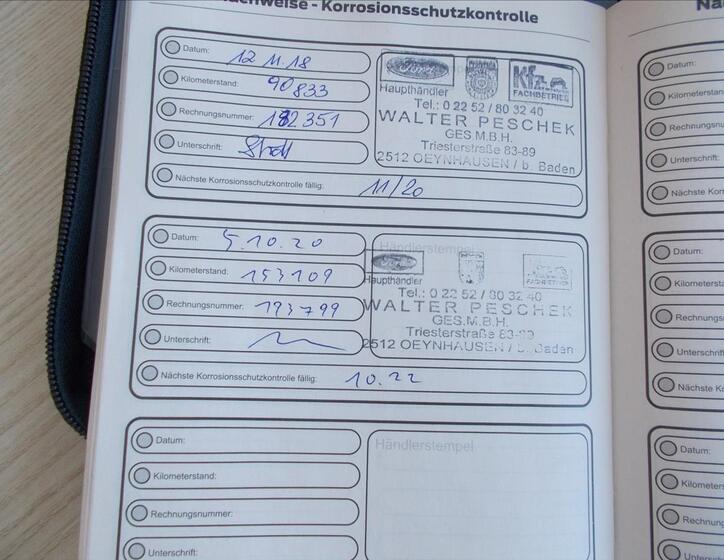 nachweise - Korrosionsschutzkontrolle
Na
Datum: 12 11.18
Kilometerstand: 90833
Rechnungsnummer: 182351
Unterschrift:
Nächste Korrosionsschutzkontrolle fällig: 11/20
Ford
Kfz
Haupthändler
FACHBETRIEB
Tel.: 0 22 52 / 80 32 40
WALTER PESCHEK
GES.M.B.H.
Triesterstraße 83-89
2512 OEYNHAUSEN / b. Baden
Datum: 5.10.20
Kilometerstand: 153109
Rechnungsnummer: 193799
Unterschrift:
Nächste Korrosionsschutzkontrolle fällig: 10.22
Händlerstempel
Ford
Haupthändler
FACHBETRIEB
Tel.: 0 22 52 / 80 32 40
WALTER PESCHEK
GES.M.B.H.
Triesterstraße 83-89
2512 OEYNHAUSEN / b. Baden
Datum:
Kilometerstand:
Rechnungsnummer:
Unterschrift:
Händlerstempel
Datum:
Kilometerstan
Rechnungsnu
Unterschrift:
Nächste Korr
Datum:
Kilometersta
Rechnungs
Unterschrift:
Nächste Ko
Datum:
Kilometers
Rechnung
Untersch